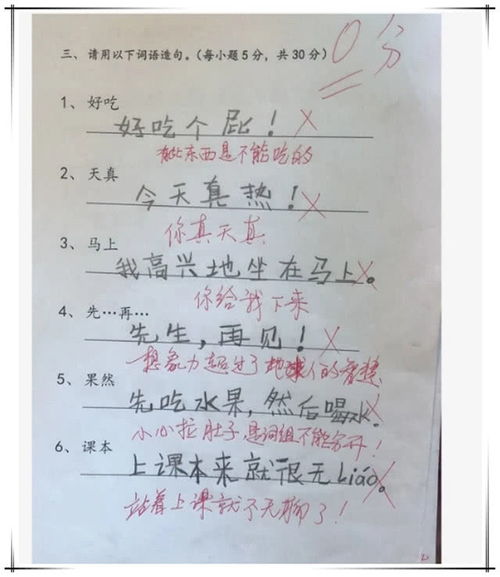 0分
三、请用以下词语造句。(每小题5分,共30分)
1、好吃
好吃个屁!
有些东西是不能吃的
2、天真
今天真热!
你真天真
3、马上
我高兴地坐在马上。
你给我下来
4、先…再…
先生,再见!
想象力超过了地球人的智慧
5、果然
先吃水果,然后喝水.
小心拉肚子 是词组不能分开!
6、课本
上课本来就很无liáo。
站着上课就不无聊了!